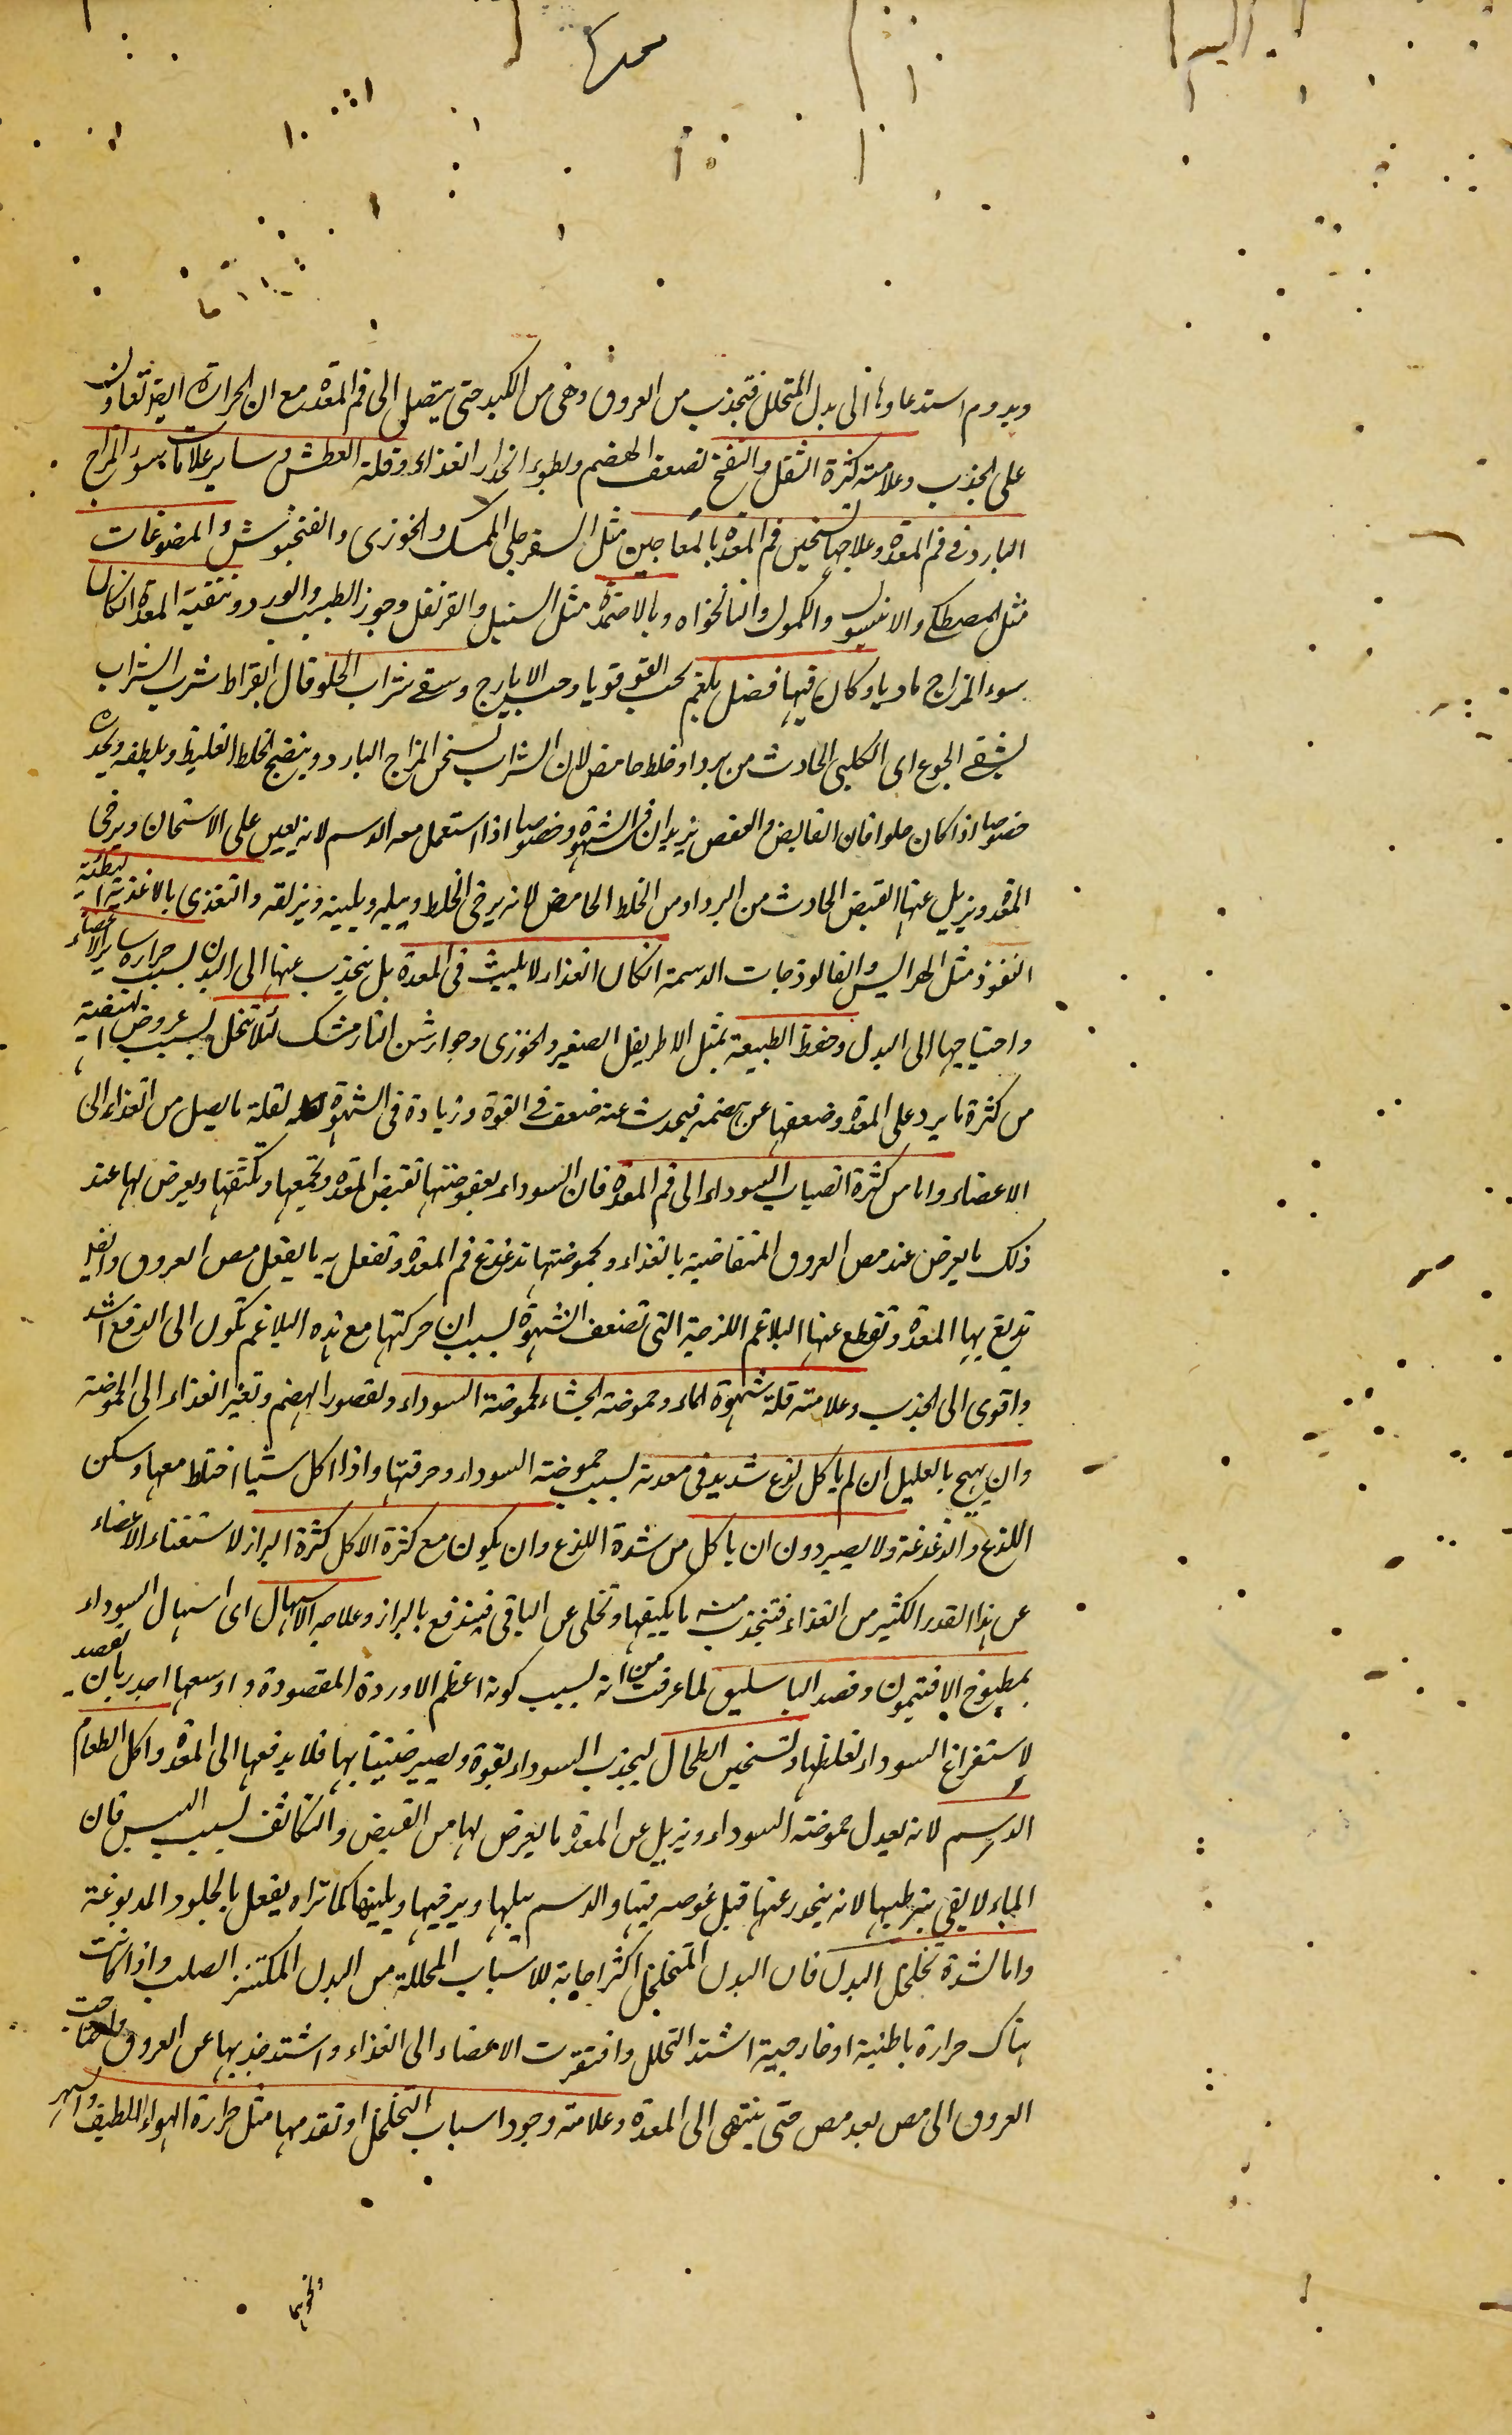 ويدوم استدعاوها الى بدل المتحلل فتجذب من العروق وهى من الكبد حتى يتصل الى فم المعدة مع ان الحرارة ايضا تعاون
على الجذب وعلامته كثرة الثفل والنفخ لضعف الهضم ولبطوء انحدار الغذاء وقلة العطش وساير علامات سوء المزاج
البارد فى فم المعدة وعلاجها تسخين فم المعدة بالمعاجين مثل السفرجلى الممسك والخوزى والفنجنوش والمضوغات
مثل المصطكى والانيسون والكمون والنانخواه وبالاضمدة مثل السنبل والقرنفل وجوز الطيب والورد وتنقية المعدة ان كان
سوء المزاج ماديا وكان فيها فضل بلغم بحب القوقويا وحب الايارج وسقى شراب الحلو قال ابقراط شرب الشراب
يشفى الجوع اى الكلبى الحادث من برد او خلط حامض لان الشراب يسخن المزاج البارد وينضج الخلط الغليظ ويلطفه ويحدره
خصوصا اذا كان حلوا فان القابض والعفص يزيدان فى الشهوة وخصوصا اذا استعمل معه الدسم لانه يعين على الاسخان ويرخى
المعدة ويزيل عنها القبض الحادث من البرد او من الخلط الحامض لانه يرخى الخلط ويبله ويلينه ويزلقه والتغذى بالاغذية البطئية
النفوذ مثل الهرايس والفالوذجات الدسمة ان كان الغذاء لا يلبث فى المعدة بل ينجذب عنها الى البدن لسبب حرارة ساير الاعضاء
واحتياجها الى البدل وحفظ الطبيعة بمثل الاطريفل الصغير والخوزى وجوارشن النارمشك لئلا تنحل بسبب عروض الهيضة
من كثرة ما يرد على المعدة وضعفها عن هضمه فيحدث عنه ضعف فى القوة وزيادة فى الشهوة لقلة ما يصل من الغذاء الى
الاعضاء واما من كثرة انصباب السوداء الى فم المعدة فان السوداء بعفوصتها تقبض المعدة وتجمعها وتكثفها ويعرض لها عند
ذلك ما يعرض عند مص العروق المتقاضية بالغذاء وبحموضتها تدغدغ فم المعدة وتفعل به ما يفعل مص العروق وايضا
تدبغ بها المعدة وتقطع عنها البلاغم اللزجة التى تضعف الشهوة بسبب ان حركتها مع هذه البلاغم تكون الى الدفع اشد
واقوى الى الجذب وعلامته قلة شهوة الماء وحموضة الجشاء لحموضة السوداء ولقصور الهضم وتغير الغذاء الى الحموضة
وان يهيج بالعليل ان لم ياكل لذع شديد فى معدته بسبب حموضة السوداء وحرقتها واذا اكل شيئا اختلط معها وسكن
اللذع والدغدغة ولا يصبر دون ان ياكل من شدة اللذع وان يكون مع كثرة الاكل كثرة البراز لاستغناء الاعضاء
عن هذا القدر الكثير من الغذاء فتنجذب منه ما يكفيها وتخلى عن الباقى فيندفع بالبراز وعلاجه الاسهال اى اسهال السوداء
بمطبوخ الافتيمون وفصد الباسليق لما عرفت من انه بسبب كونه اعظم الاوردة المقصودة واوسعها اجدر بان يفصد
لاستفراغ السوداء لغلظها وتسخين الطحال ليجذب السوداء بقوة ويصير ضنينا بها فلا يدفعها الى المعدة واكل الطعام
الدسم لانه يعدل حموضة السوداء ويزيل عن المعدة ما يعرض لها من القبض والتكاثف بسبب اليبس فان
الماء لا يفى بترطيبها لانه ينحدر عنها قبل غوصه فيها والدسم يبلها ويرخيها ويلينها كما تراه يفعل بالجلود المدبوغة
واما لشدة تخلخل البدن فان البدن المتخلخل اكثر اجابة للاسباب المحللة من البدن المكتنز الصلب واذا كانت
هناك حرارة باطنية او خارجية اشتد التحلل وافتقرت الاعضاء الى الغذاء واشتد جذبها عن العروق واحتاجت
العروق الى مص بعد مص حتى ينتهى الى المعدة وعلامته وجود اسباب التخلخل او تقدمها مثل حرارة الهواء اللطيف والسهر